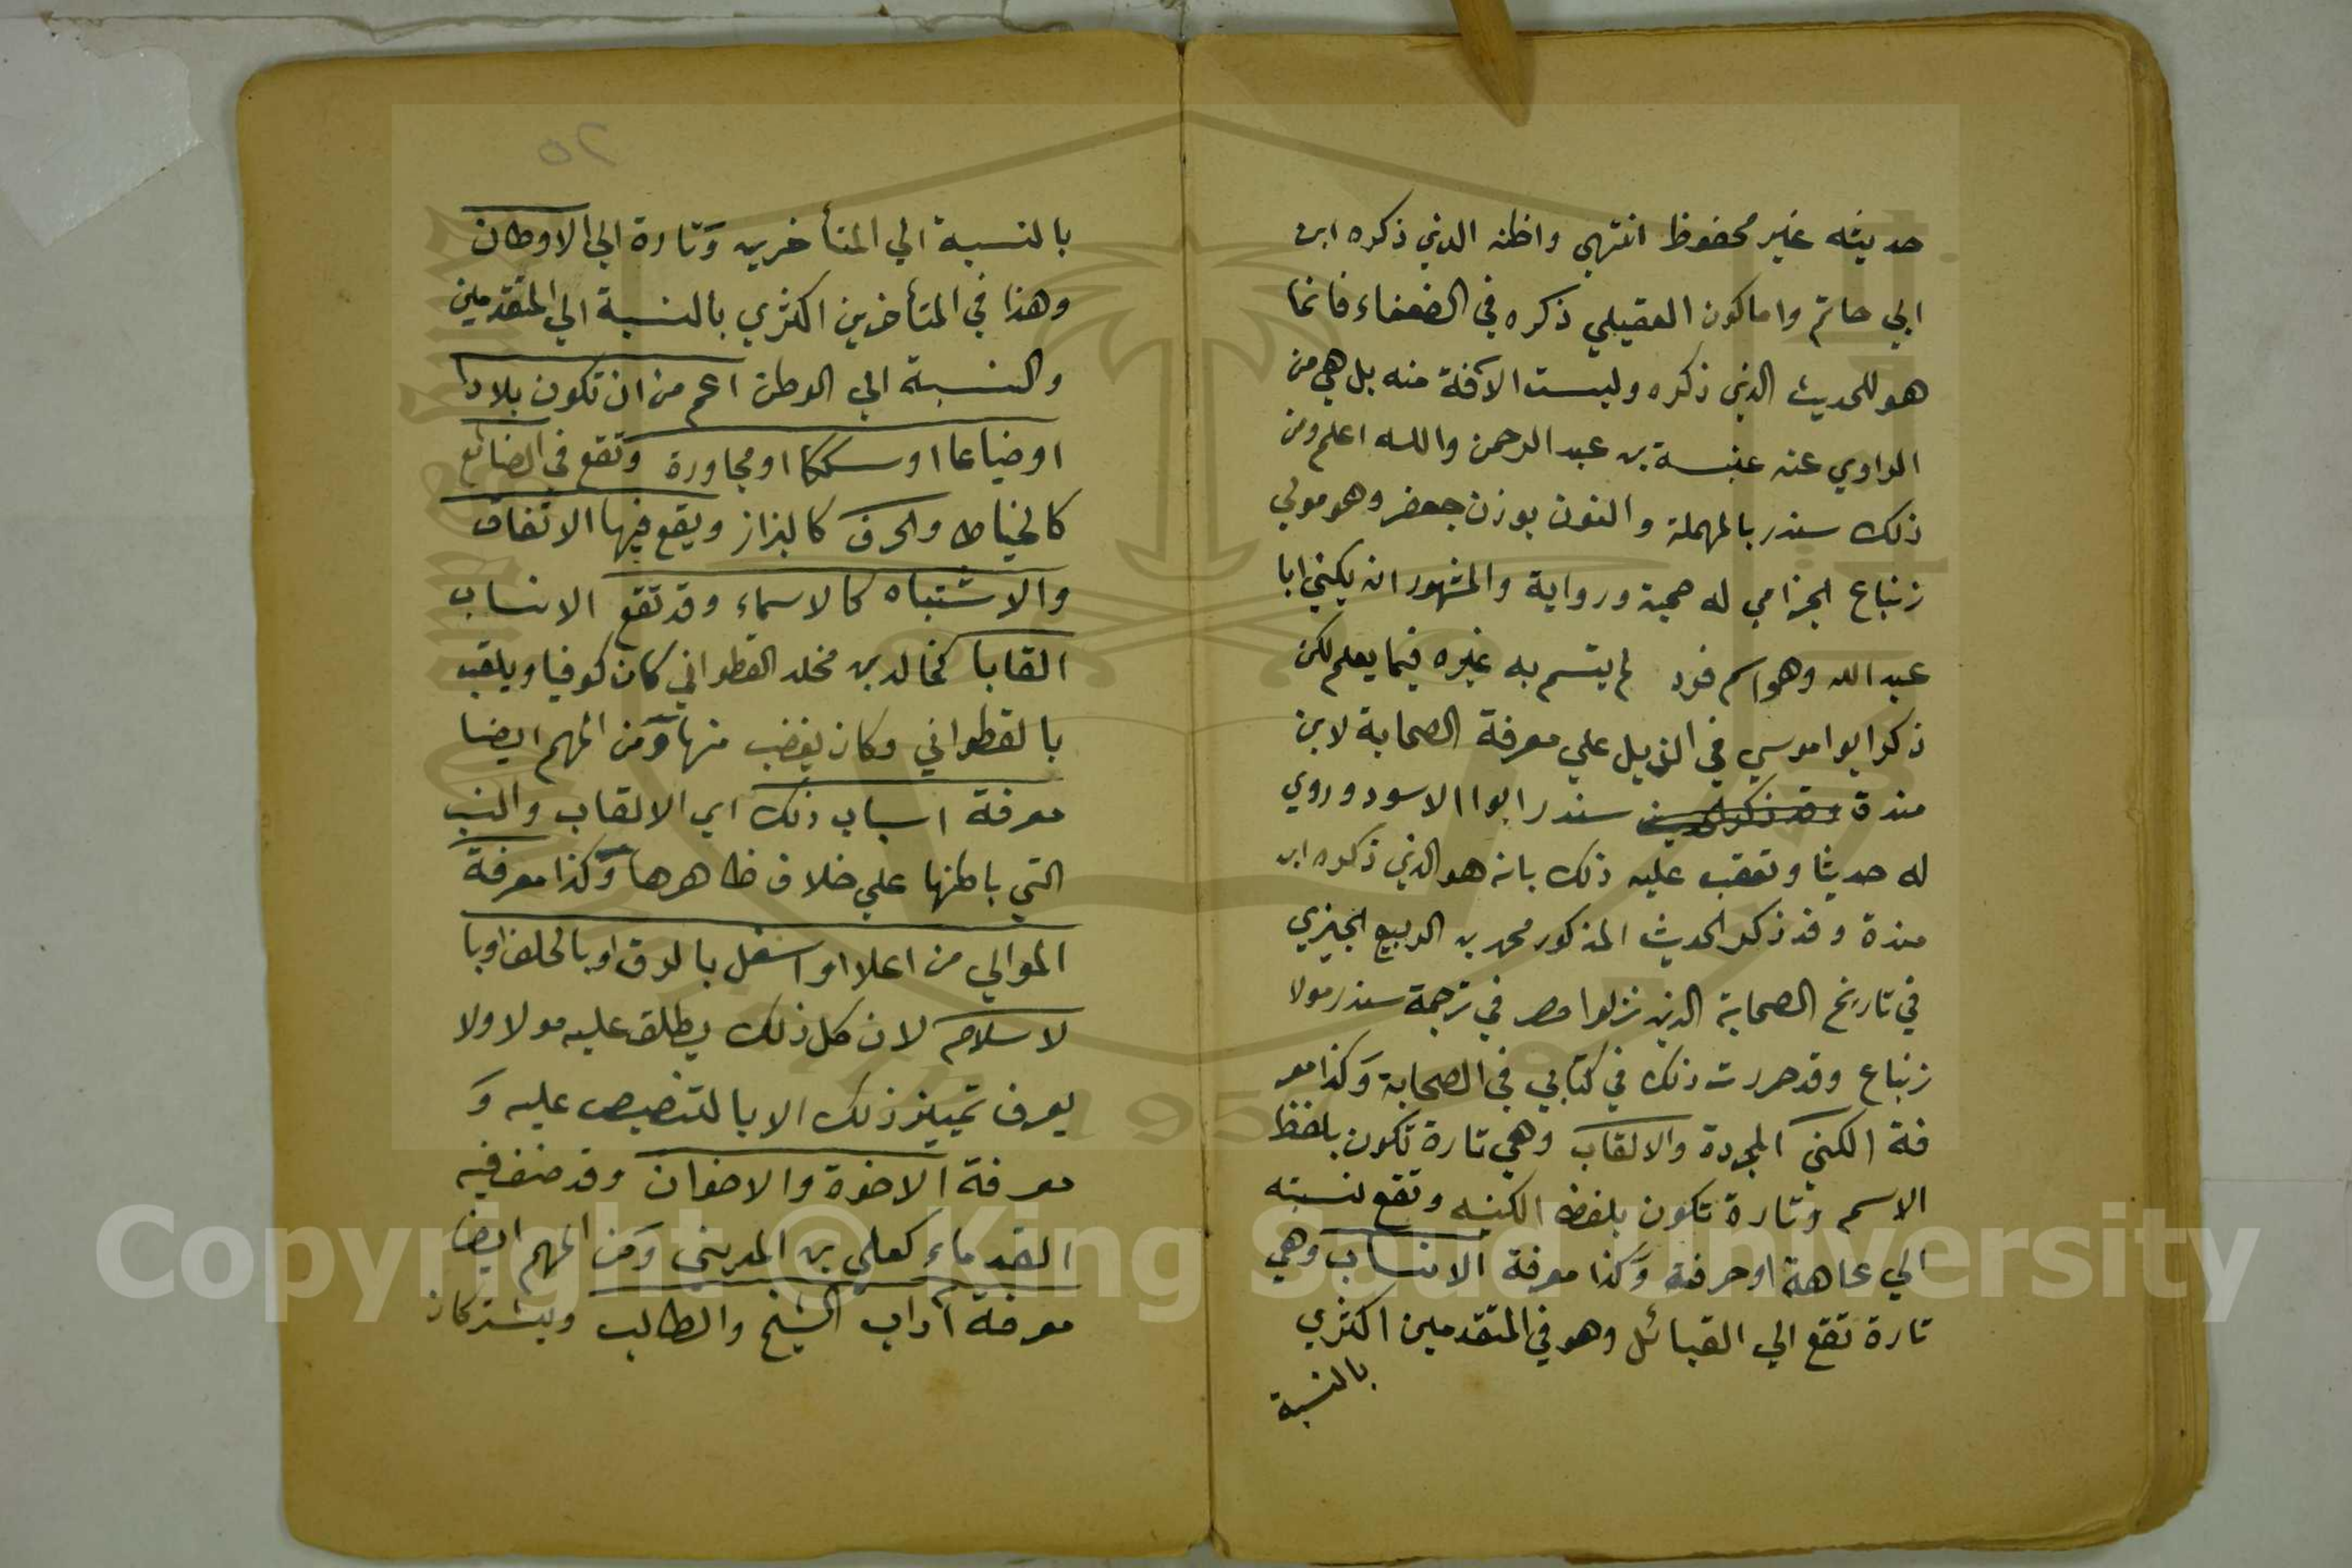 حديثه غير محفوظ انتهي واظنه الذي ذكره ابن
ابي حاتم واما كون العقيلي ذكره في الضعفاء فانما
هو للحديث الذي ذكره وليست الآفة منه بل هي من
الراوي عنه عنبسة بن عبد الرحمن والله اعلم ومن
ذلك سندر بالمهملة والنون بوزن جعفر وهو مولي
زنباع الجزامي له صحبة ورواية والمشهور انه يكني ابا
عبد الله وهو اسم فرد لم يتسم به غيره فيما يعلم لكن
ذكر ابوا موسي في الذيل علي معرفة الصحابة لابن
مندة سندر ابوا الاسود وروي
له حديثا وتعقب عليه ذلك بانه هو الذي ذكره ابن
مندة وقد ذكر الحديث المذكور محمد بن الربيع الجيزي
في تاريخ الصحابة الذين نزلوا مصر في ترجمة سندر مولا
زنباع وقد حررت ذلك في كتابي في الصحابة وَكذا معر
فة الكني المجردة والالقاب وهي تارة تكون بلفظ
الاسم وتارة تكون بلفظ الكنيه وتقع نسبته
الي عاهة او حرفة وَكذا معرفة الانساب وهي
تارة تقع الي القبائل وهو في المتقدمين اكثري
بالنسبة
٢٥
بالنسبة الي المتأخرين وَتارة الي الاوطان
وهذا في المتأخرين اكثري بالنسبة الي المتقدمين
والنسبة الي الوطن اعم من ان تكون بلادا
او ضياعا او سككا او مجاورة وتقع في الصنائع
كالخياط والحرف كالبزاز ويقع فيها الاتفاق
والاشتباه كالاسماء وقد تقع الانساب
القابا كخالد بن مخلد القطواني كان كوفيا ويلقب
بالقطواني وكان يغضب منها وَمن المهم ايضا
معرفة اسباب ذلك اي الالقاب والنسب
التي باطنها علي خلاف ظاهرها وَكذا معرفة
الموالي من اعلا او اسفل بالرق او بالحلف او با
لاسلام لان كل ذلك يطلق عليه مولا ولا
يعرف تمييز ذلك الا بالتنصيص عليه وَ
معرفة الاخوة والاخوان وقد صنف فيه
القدماء كعلي بن المديني وَمن المهم ايضا
معرفة آداب الشيخ والطالب ويشتركان
Copyright © King Saud University
1957